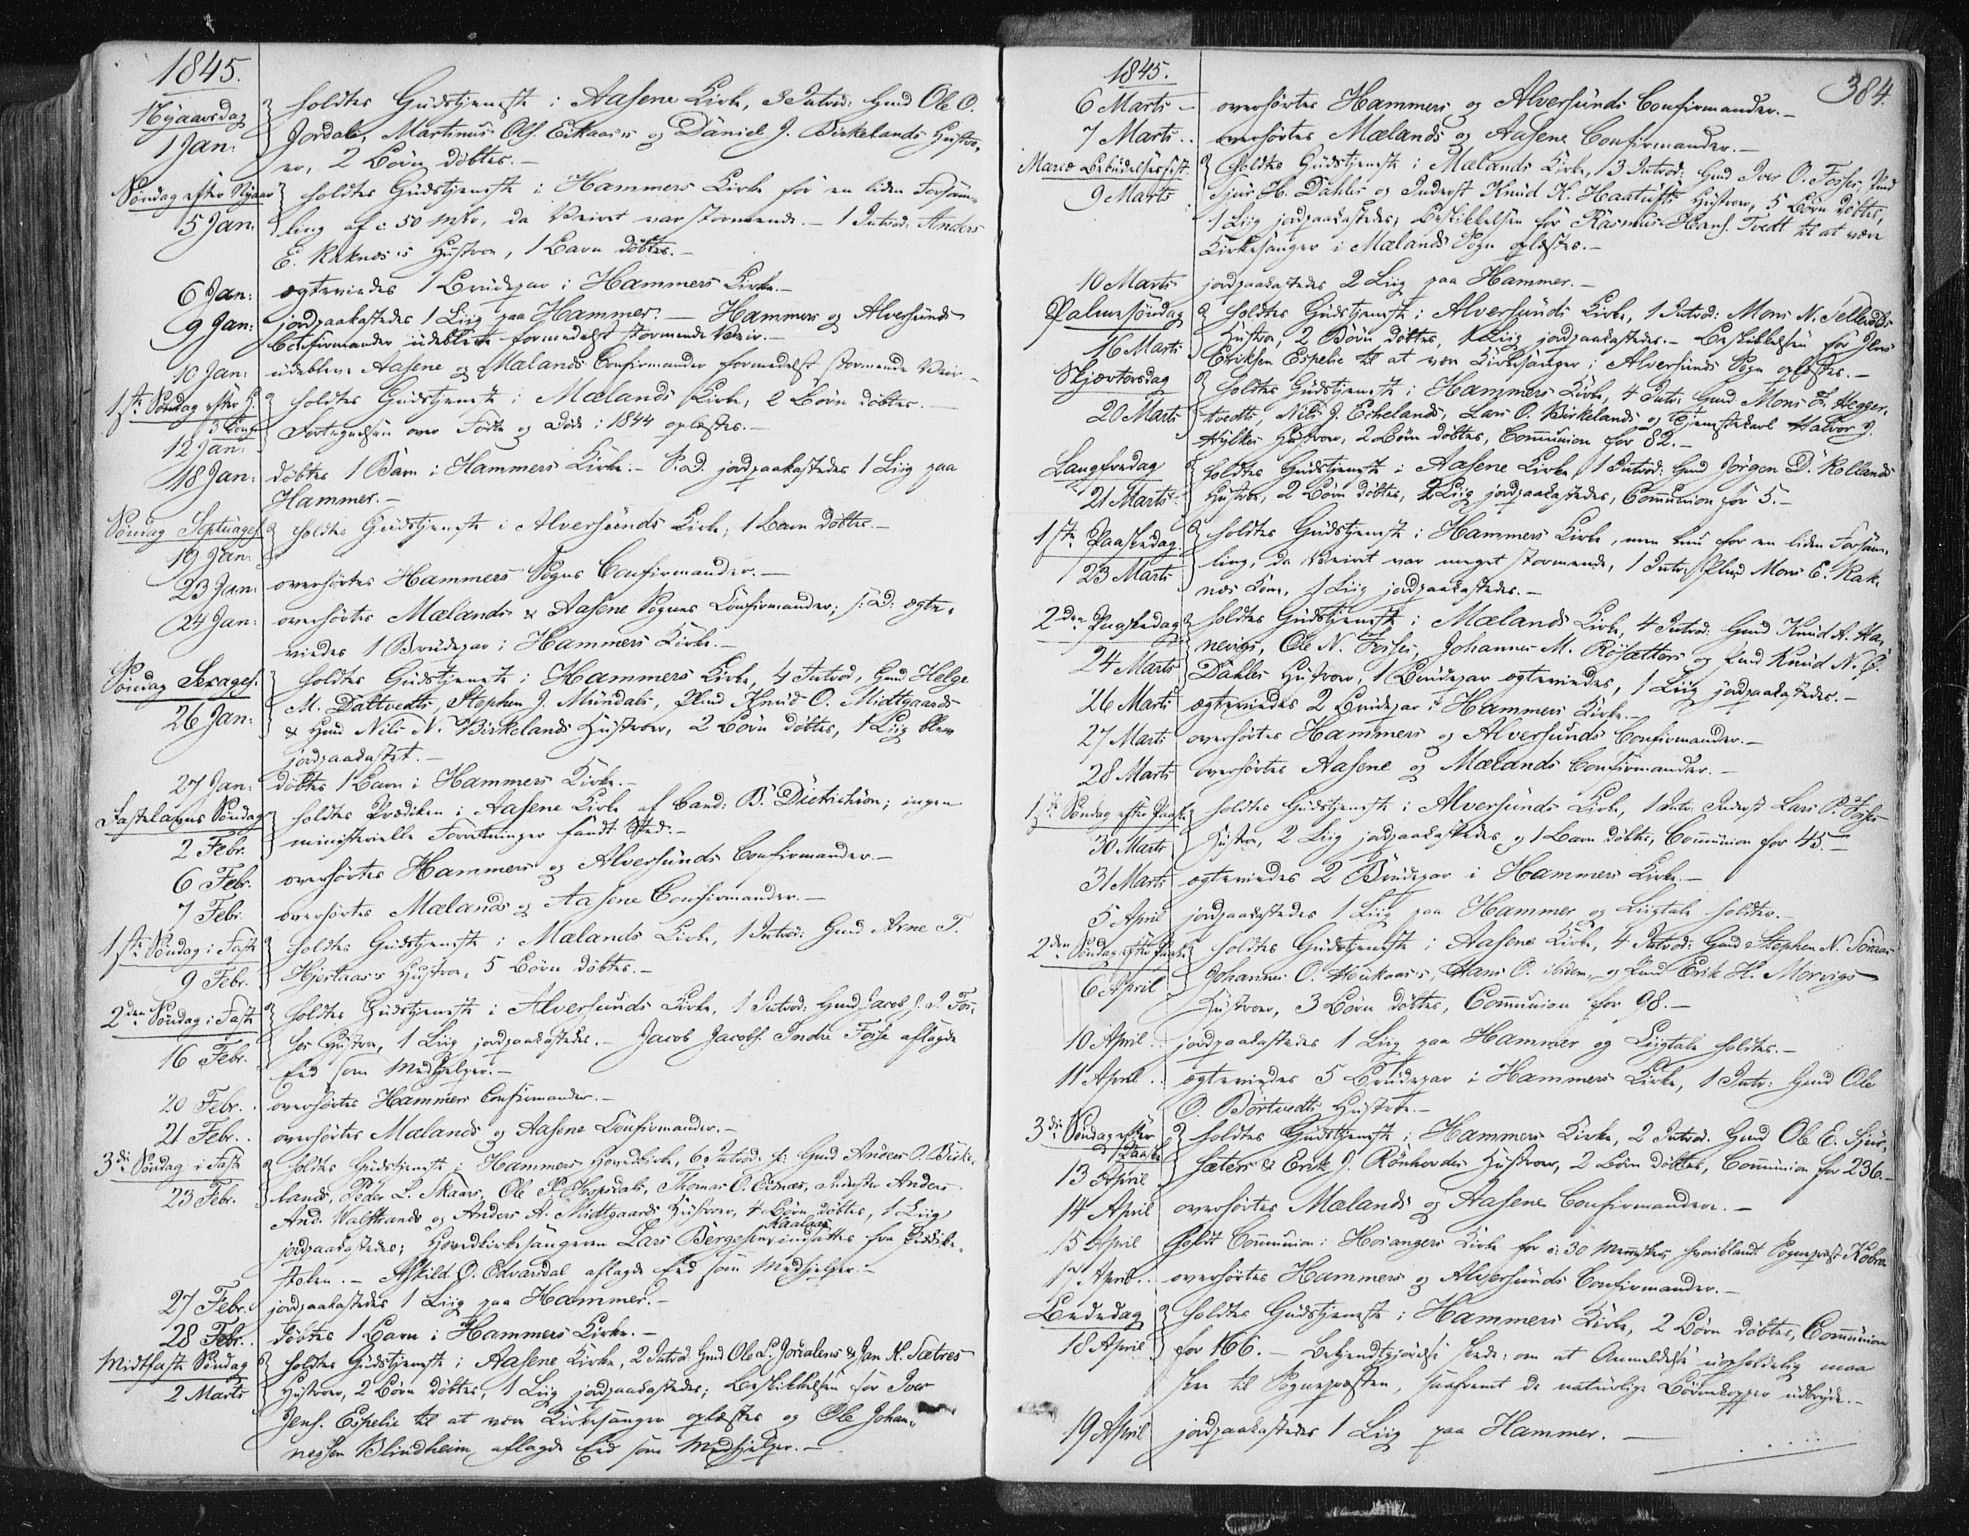 1845.
Nyaarsdag holdtes Gudstjeneste i Aasene Kirke, 3 Introd: Gmd Ole O.
1 Jan: Jordals, Martinus Ols. Eikaas's og Daniel J. Birkelands Hustru-
er, 2 Børn døbtes.—
Søndag efter Nyaar holdtes Gudstjeneste i Hammers Kirke for en liden Forsam-
5 Jan: ling af c: 50 Msker, da Veiret var stormende.— 1 Introd: Anders
E. Raknes's Hustrue, 1 Barn døbtes.—
6 Jan: ægteviedes 1 Brudepar i Hammers Kirke.—
9 Jan: jordpaakastedes 1 Liig paa Hammer.— Hammers og Alversunds
Confirmander udebleve formedelst stormende Veir.—
10 Jan: udebleve Aasene og Mælands Confirmander formedelst stormende Veir.—
1ste Søndag efter H: holdtes Gudstjeneste i Mælands Kirke, 2 Børn døbtes.—
3 Konger Fortegnelsen over Fødte og Døde i 1844 oplæstes.—
12 Jan:
18 Jan: døbtes 1 Barn i Hammers Kirke.— S. D. jordpaakastedes 1 Liig paa
Hammer.—
Søndag Septuages: holdtes Gudstjeneste i Alversunds Kirke, 1 Barn døbtes.—
19 Jan:
23 Jan: overhørtes Hammers Sogns Confirmander.—
24 Jan: overhørtes Mælands & Aasene Sognes Confirmander; s: D: ægte-
viedes 1 Brudepar i Hammers Kirke.—
Søndag Sexages: holdtes Gudstjeneste i Hammers Kirke, 4 Introd, Gmd Helge
26 Jan: M. Dattvedts, Stephen J. Mundals, Plmd Knud O. Midtgaards
& Hmd Nils N. Birkelands Hustruer, 2 Børn døbtes, 1 Liig blev
jordpaakastet.—
27 Jan: døbtes 1 Barn i Hammers Kirke.—
Fastelavns Søndag holdtes Prædiken i Aasene Kirke af Cand: B. Dietrichson; ingen
2 Febr. ministerielle Forretninger fandt Sted.—
6 Febr. overhørtes Hammers og Alversunds Confirmander.—
7 Febr. overhørtes Mælands og Aasene Confirmander.—
1ste Søndag i Faste holdtes Gudstjeneste i Mælands Kirke, 1 Introd: Gmd Arne T.
9 Febr. Hjertaas's Hustrue, 5 Børn døbtes.—
2den Søndag i Faste holdtes Gudstjeneste i Alversunds Kirke, 1 Introd: Gmd Jacob J. I. Fos-
16 Febr. ses Hustrue, 1 Liig jordpaakastedes.— Jacob Jacobs. Indre Fosse aflagde
Eed som Medhjelper.—
20 Febr. overhørtes Hammers Confirmander.—
21 Febr. overhørtes Mælands og Aasene Confirmander.—
3die Søndag i Faste holdtes Gudstjeneste i Hammers Hovedkirke, 6 Introd: Gmd Anders O. Birke-
23 Febr. lands, Peder L. Skaars, Ole P. Hopsdals, Thomas O. Eidnes, Inderster Anders
And. Valstrands og Anders A. Midtgaards Hustruer, 4 Børn døbtes, 1 Liig
jordpaakastedes; Hovedkirkesangeren Lars Børgesen Kaalaas indsattes fra Prædike-
stolen.— Askild O. Edvarsdal aflagde Eed som Medhjelper.—
27 Febr. jordpaakastedes 1 Liig paa Hammer.—
28 Febr. døbtes 1 Barn i Hammers Kirke.—
Midtfaste Søndag holdtes Gudstjeneste i Aasene Kirke, 2 Introd. Gmd Ole L. & Jan H. Sætres
2 Marts Hustruer, 2 Børn døbtes, 1 Liig jordpaakastedes; Beskikkelsen for Iver
Jens. Espelie til at være Kirkesanger oplæstes og Ole Johan-
nessen Blindheim aflagde Eed som Medhjelper.—
1845. 384.
6 Marts overhørtes Hammers og Alversunds Confirmander.—
7 Marts overhørtes Mælands og Aasene Confirmander.—
Mariæ Bebudelsesfest holdtes Gudstjeneste i Mælands Kirke, 3 Introd: Gmd Iver O. Fosses, Plmd
9 Marts Sjur H. Dahles og Inderst Knud K. Hustruer, 5 Børn døbtes,
1 Liig jordpaakastedes; Beskikkelsen for Rasmus Hans. Tvedt til at være
Kirkesanger i Mælands Sogn oplæstes.—
10 Marts jordpaakastedes 2 Liig paa Hammer.—
Palmesøndag holdtes Gudstjeneste i Alversunds Kirke, 1 Introd: Mons N.
16 Marts Hustrue, 2 Børn døbtes, 1 Liig jordpaakastedes.— Beskikkelsen for
Eriksen Espelie til at være Kirkesanger i Alversunds Sogn oplæstes.—
Skjærtorsdag holdtes Gudstjeneste i Hammers Kirke, 4 Intr: Gmd Mons Hegger-
20 Marts tvedts, Nils J. Echelands, Lars O. Birkelands og Tjenestekarl Halvor J.
Hylkes Hustruer, 2 Børn døbtes, Communion for 82.—
Langfredag holdtes Gudstjeneste i Aasene Kirke, 1 Introd: Gmd Jørgen D. Rollands
21 Marts Hustrue, 2 Børn døbtes, 2 Liig jordpaakastedes, Communion for 5.—
1ste Paaskedag holdtes Gudstjeneste i Hammers Kirke, men kun for en liden Forsam-
23 Marts ling, da Veiret var meget stormende, 1 Intr: Plmd Mons E. Rak-
nes Kone, 1 Liig jordpaakastedes.—
2den Paaskedag holdtes Gudstjeneste i Mælands Kirke, 4 Introd: Gmd Knud A. Ha-
24 Marts nevigs, Ole N. Fosses, Johannes M. Røsætters og Lmd Knud N. Ø.
Dahles Hustruer, 1 Brudepar ægteviedes, 1 Liig jordpaakastedes.—
26 Marts ægteviedes 2 Brudepar i Hammers Kirke.—
27 Marts overhørtes Hammers og Alversunds Confirmander.—
28 Marts overhørtes Aasene og Mælands Confirmander.—
1ste Søndag efter Paaske holdtes Gudstjeneste i Alversunds Kirke, 1 Intr: Inderst Lars O. Fosses
30 Marts Hustrue, 2 Liig jordpaakastedes, og 1 Barn døbtes, Communion for 45.—
31 Marts ægteviedes 2 Brudepar i Hammers Kirke.—
5 April jordpaakastedes 1 Liig paa Hammer og Liigtale holdtes.—
2den Søndag efter Paaske holdtes Gudstjeneste i Aasene Kirke, 4 Introd: Gmd Stephen N.
6 April Johannes O. Houkaas's, Hans O. ibidem, og Lmd Erik H. Morvigs
Hustruer, 3 Børn døbtes, Communion for 98.—
10 April jordpaakastedes 1 Liig paa Hammer og Liigtale holdtes.—
11 April ægteviedes 5 Brudepar i Hammers Kirke, 1 Intr: Gmd Ole
O. Børtvedts Hustrue.—
3die Søndag efter Paaske holdtes Gudstjeneste i Hammers Kirke, 2 Introd. Gmd Ole E. Sjur-
13 April sæters & Erik J. Rønhovdes Hustruer, 2 Børn døbtes, Communion for 236.—
14 April overhørtes Mælands og Aasene Confirmander.—
15 April holdt Communion i Hosangers Kirke for c: 30 Mennesker, hvoriblandt Sognepræst Kobro.
17 April overhørtes Hammers og Alversunds Confirmander.—
Bededag holdtes Gudstjeneste i Hammers Kirke, 2 Børn døbtes, Communion
18 April for 166.— Bekjendtgjørelse skede om at Anmeldelse uopholdelig maa
skee til Sognepræsten, saafremt de naturlige Børnekopper udbryde.—
19 April jordpaakastedes 1 Liig paa Hammer.—